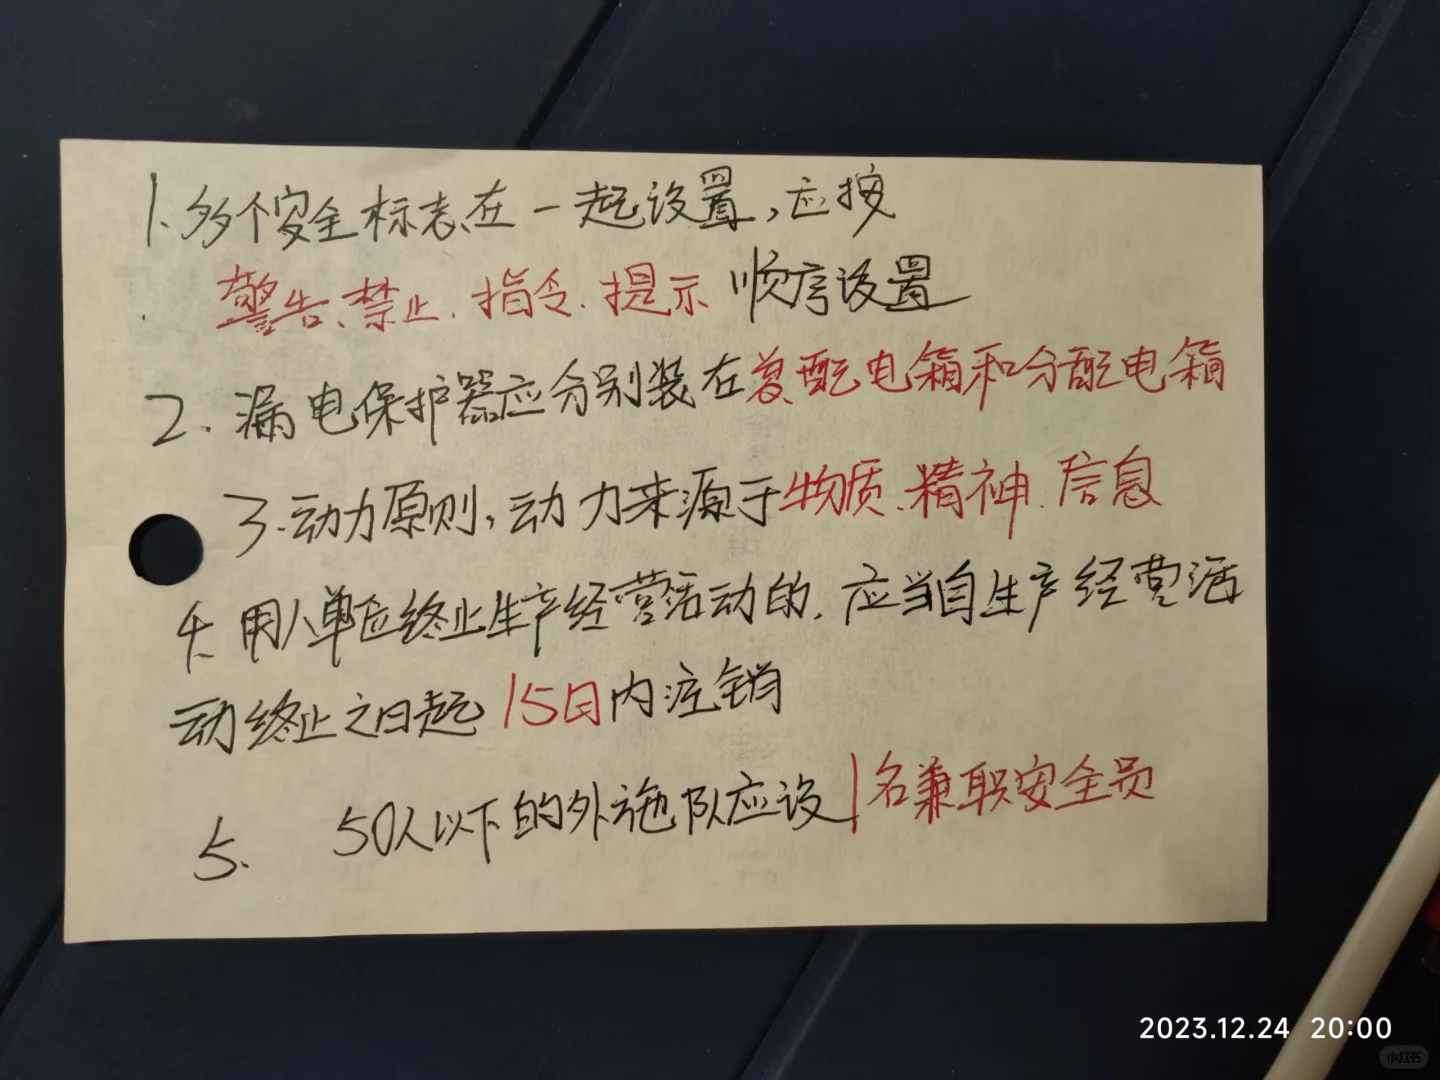 1.多个安全标志在一起设置,应按
警告、禁止、指令、提示 顺序设置
2.漏电保护器应分别装在总配电箱和分配电箱
3.动力原则,动力来源于物质、精神、信息
4.用人单位终止生产经营活动的,应当自生产经营活
动终止之日起15日内注销
5.50人以下的外施队应设1名兼职安全员
2023.12.24 20:00
小红书